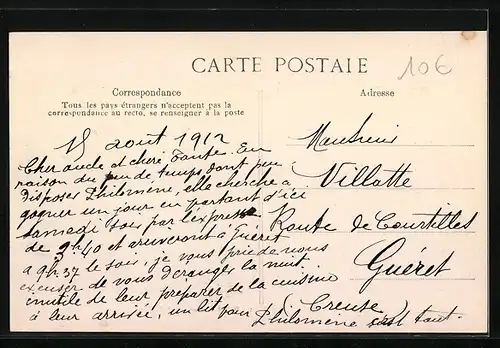 CARTE POSTALE
10€
Correspondance
Tous les pays étrangers n'acceptent pas la
correspondance au recto, se renseigner à la poste
Adresse
15 août 1912
Cher oncle et chère Tante. En
raison du peu de temps dont peu
disposer Philomène, elle cherche à
gagner un jour en partant d'ici
samedi soir par l'express
de 3h 40 et arriveront à Guéret
à 9h 37 le soir, je vous prie de nous
excuser de vous déranger la nuit
inutile de leur préparer de la cuisine
à leur arrivée, un lit pour
Philomène c'est tout.
Monsieur
Villatte
Route de Courtilles
Guéret
(Creuse